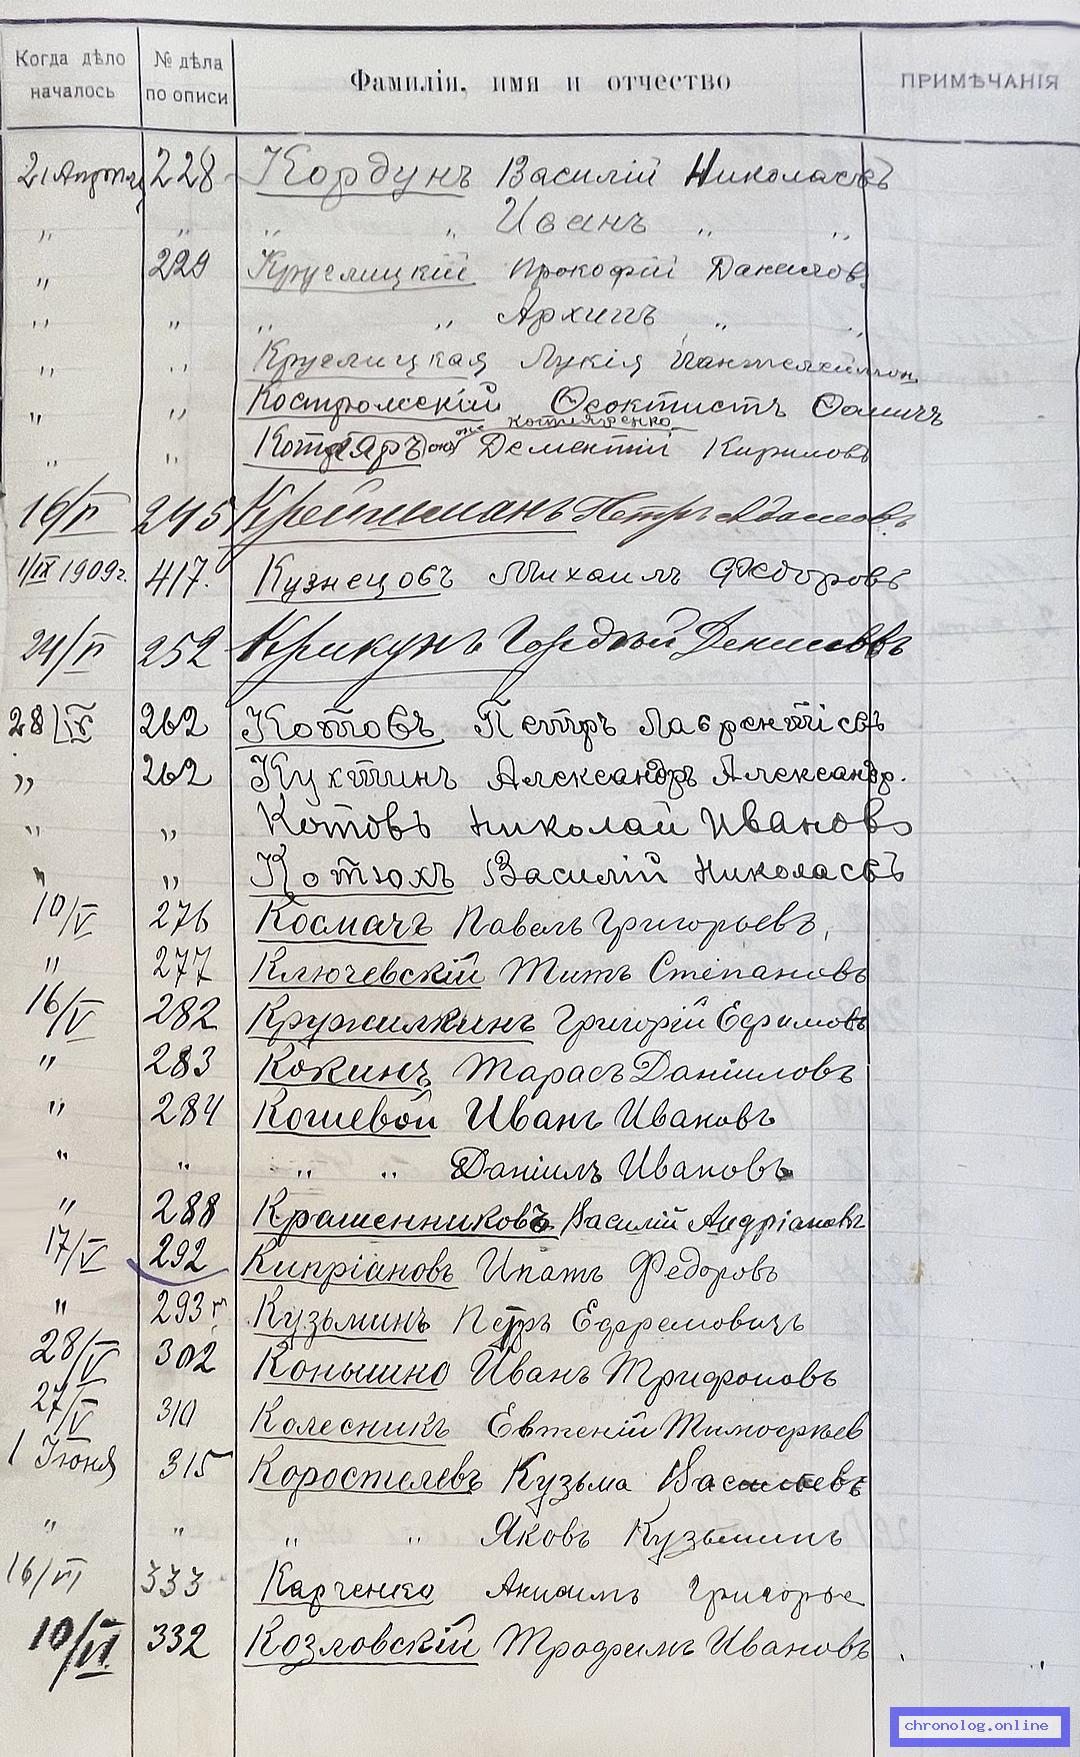 Когда дѣло началось № дѣла по описи Фамилія, имя и отчество ПРИМѢЧАНІЯ
21 Апрѣля 228 Кордунъ Василій Николаевъ
" " " " Иванъ " "
" 229 Круглицкій Прокофій Данилов.
" " " " Архипъ " "
" " Круглицкая Лукія Пантелеймон.
" " Костромскій Ѳеоктистъ Ѳомичъ
онъ же Котляренко
" " Котляръ Дементій Кириловъ
16/IV 245 Крейцманъ Петръ Адамовъ
1/IX 1909 г. 417. Кузнецовъ Михаилъ Федоровъ
24/IV 252 Крикунъ Гордѣй Денисовъ
28/IV 262 Котовъ Петръ Лаврентіевъ
" 262 Кухтинъ Александръ Александр.
" " Котовъ Николай Ивановъ
" " Котюхъ Василій Николаевъ
10/V 276 Космачъ Павелъ Григорьевъ,
" 277 Ключевскій Титъ Степановъ
16/V 282 Кружилкинъ Григорій Ефимовъ
" 283 Кокинъ Тарасъ Даніиловъ
" 284 Кошевой Иванъ Ивановъ
" " " " Даніилъ Ивановъ
" 288 Крашенниковъ Василій Андріановъ
17/V 292 Кипріановъ Ипатъ Федоровъ
" 293 Кузьминъ Петръ Ефремовичъ
28/V 302 Коньшино Иванъ Трифоновъ
27/V 310 Колесникъ Евгеній Тимофѣев
1 Іюня 315 Коростелевъ Кузьма Васильевъ
" " " " Яковъ Кузьминъ
16/VI 333 Карченко Анисимъ Григорье
10/VI 332 Козловскій Трофимъ Ивановъ
chronolog.online